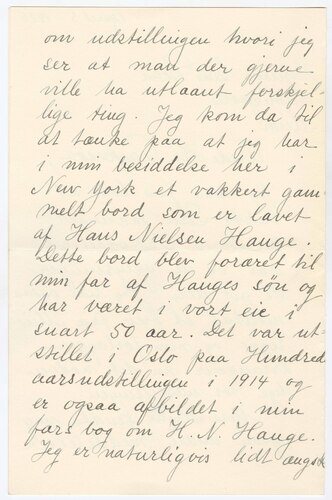 om udstillingen hvori jeg
ser at man der gjerne
ville ha utlaant forskjel-
lige ting. Jeg kom da til
at tænke paa at jeg har
i min besiddelse her i
New York et vakkert gam-
melt bord som er lavet
af Hans Nielsen Hauge.
Dette bord blev foræret til
min far af Hauges søn og
har været i vort eie i
snart 50 aar. Det var ut-
stillet i Oslo paa Hundred
aarsudstillingen i 1914 og
er ogsaa afbildet i min
fars bog om H. N. Hauge.
Jeg er naturligvis lidt